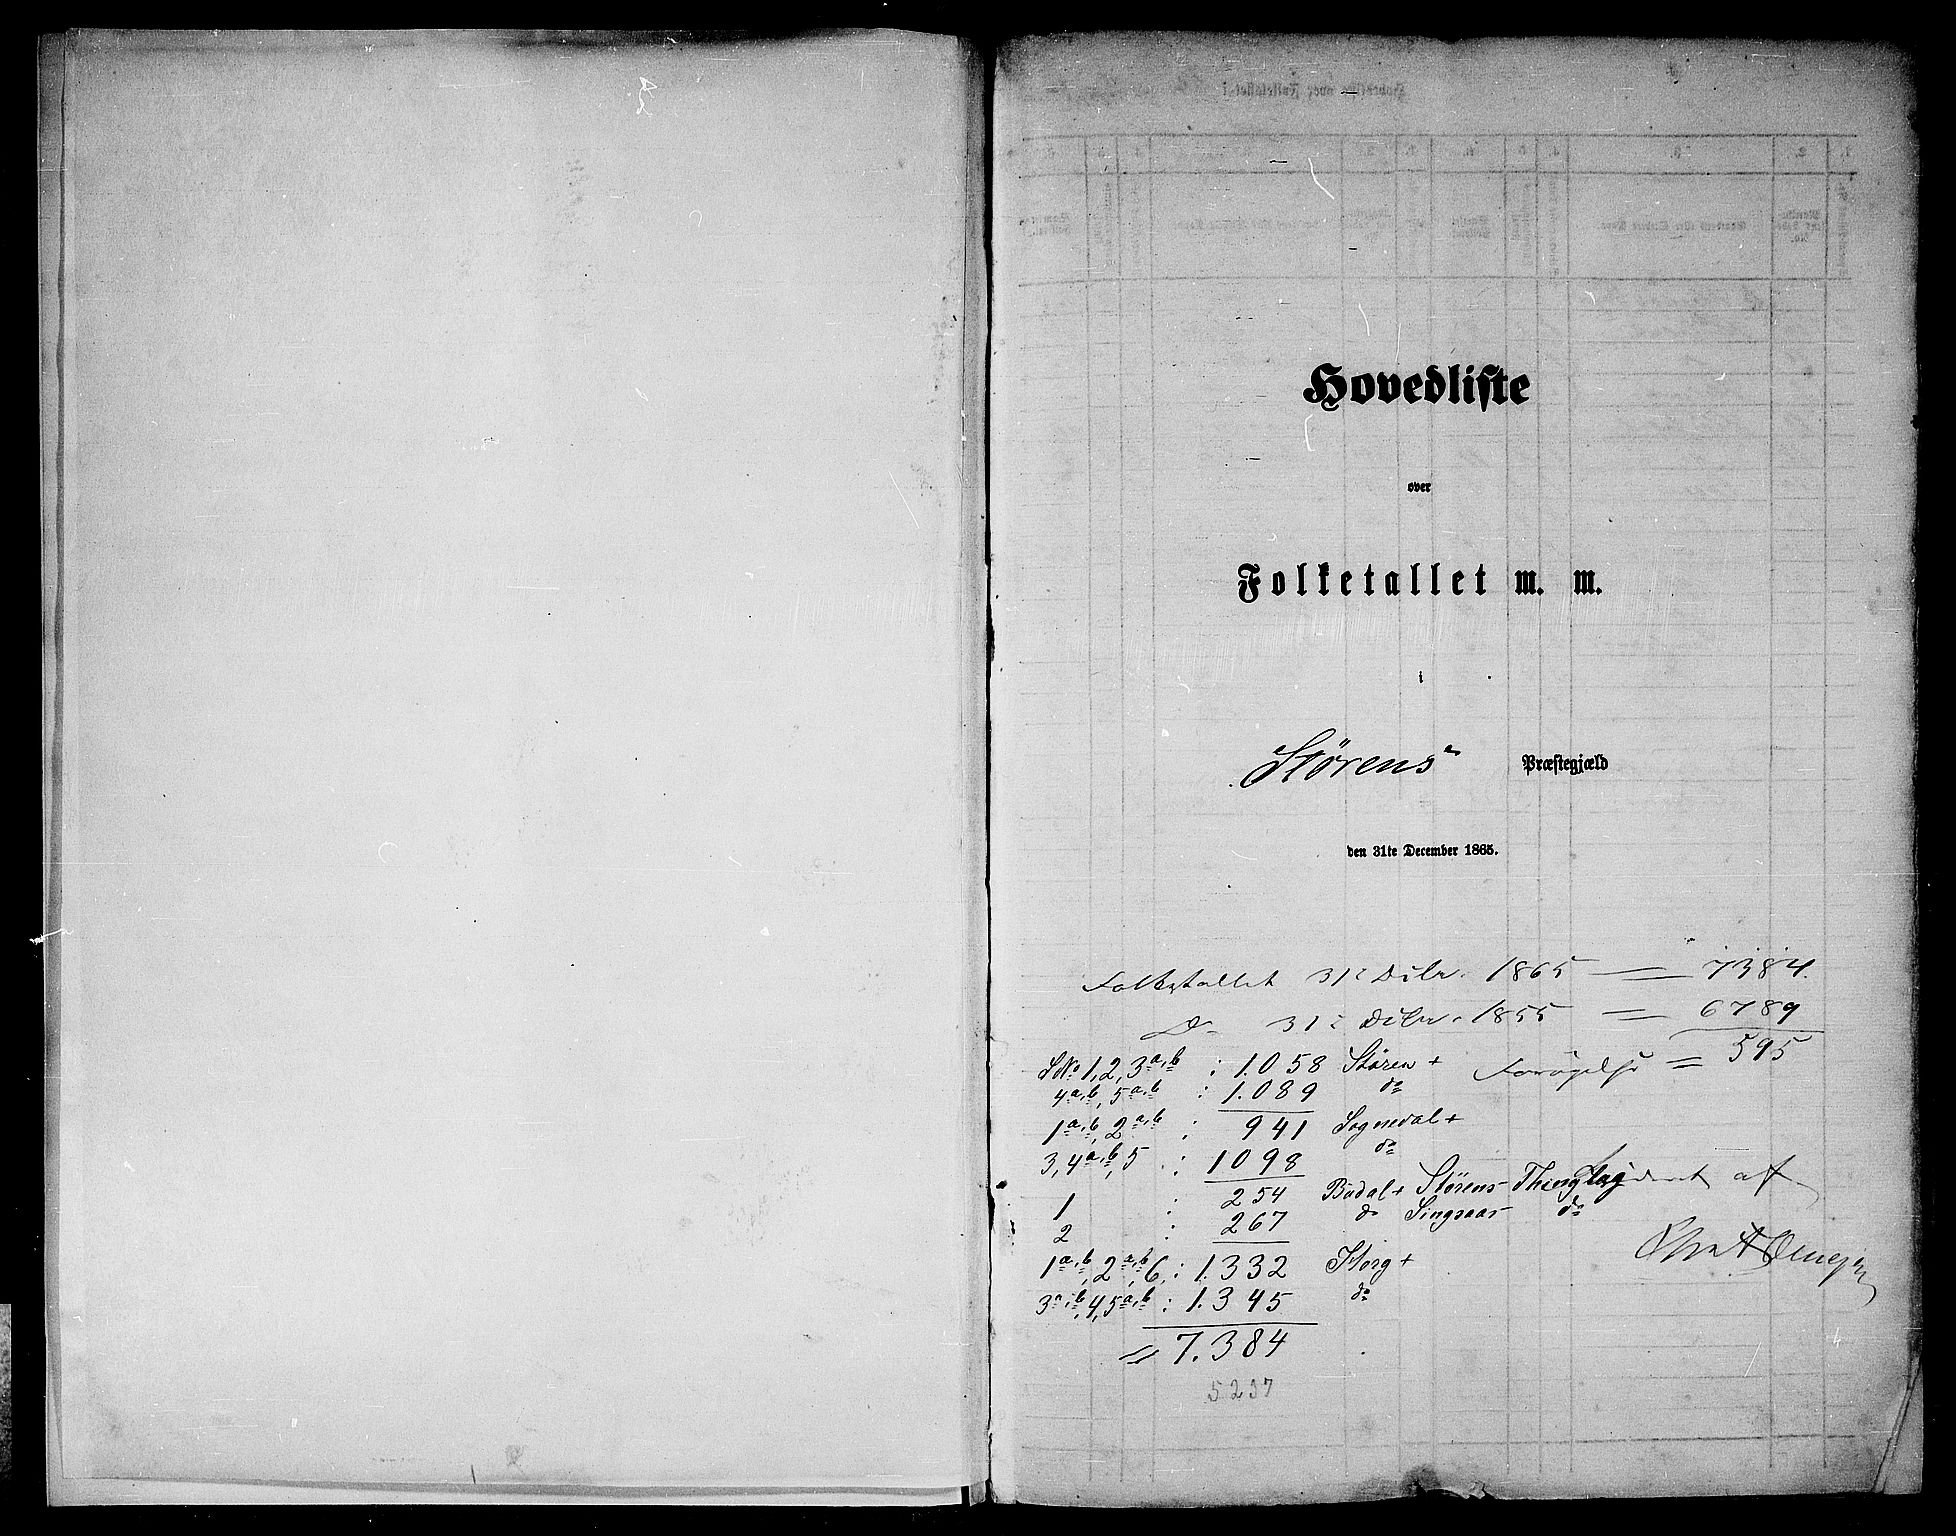 Hovedliste
over
Folketallet m. m.
i
Störens Præstegjæld
den 31te December 1865.
Folketallet 31 Dcbr. 1865 = 7384.
Do 31 Dcbr. 1855 = 6789
Forøgelse = 595
SNo 1, 2, 3a,b : 1.058 Stören +
4a,b, 5a,b : 1.089 do
1a,b, 2a,b : 941 Sognedal +
3, 4a,b, 5 : 1098 do
1 : 254 Budal + Störens Thinglag
2 : 267 do Singsaas do
af
1a,b, 2a,b, 6 : 1.332 Horg +
3a,b, 4, 5a,b : 1.345 do
= 7.384
5237